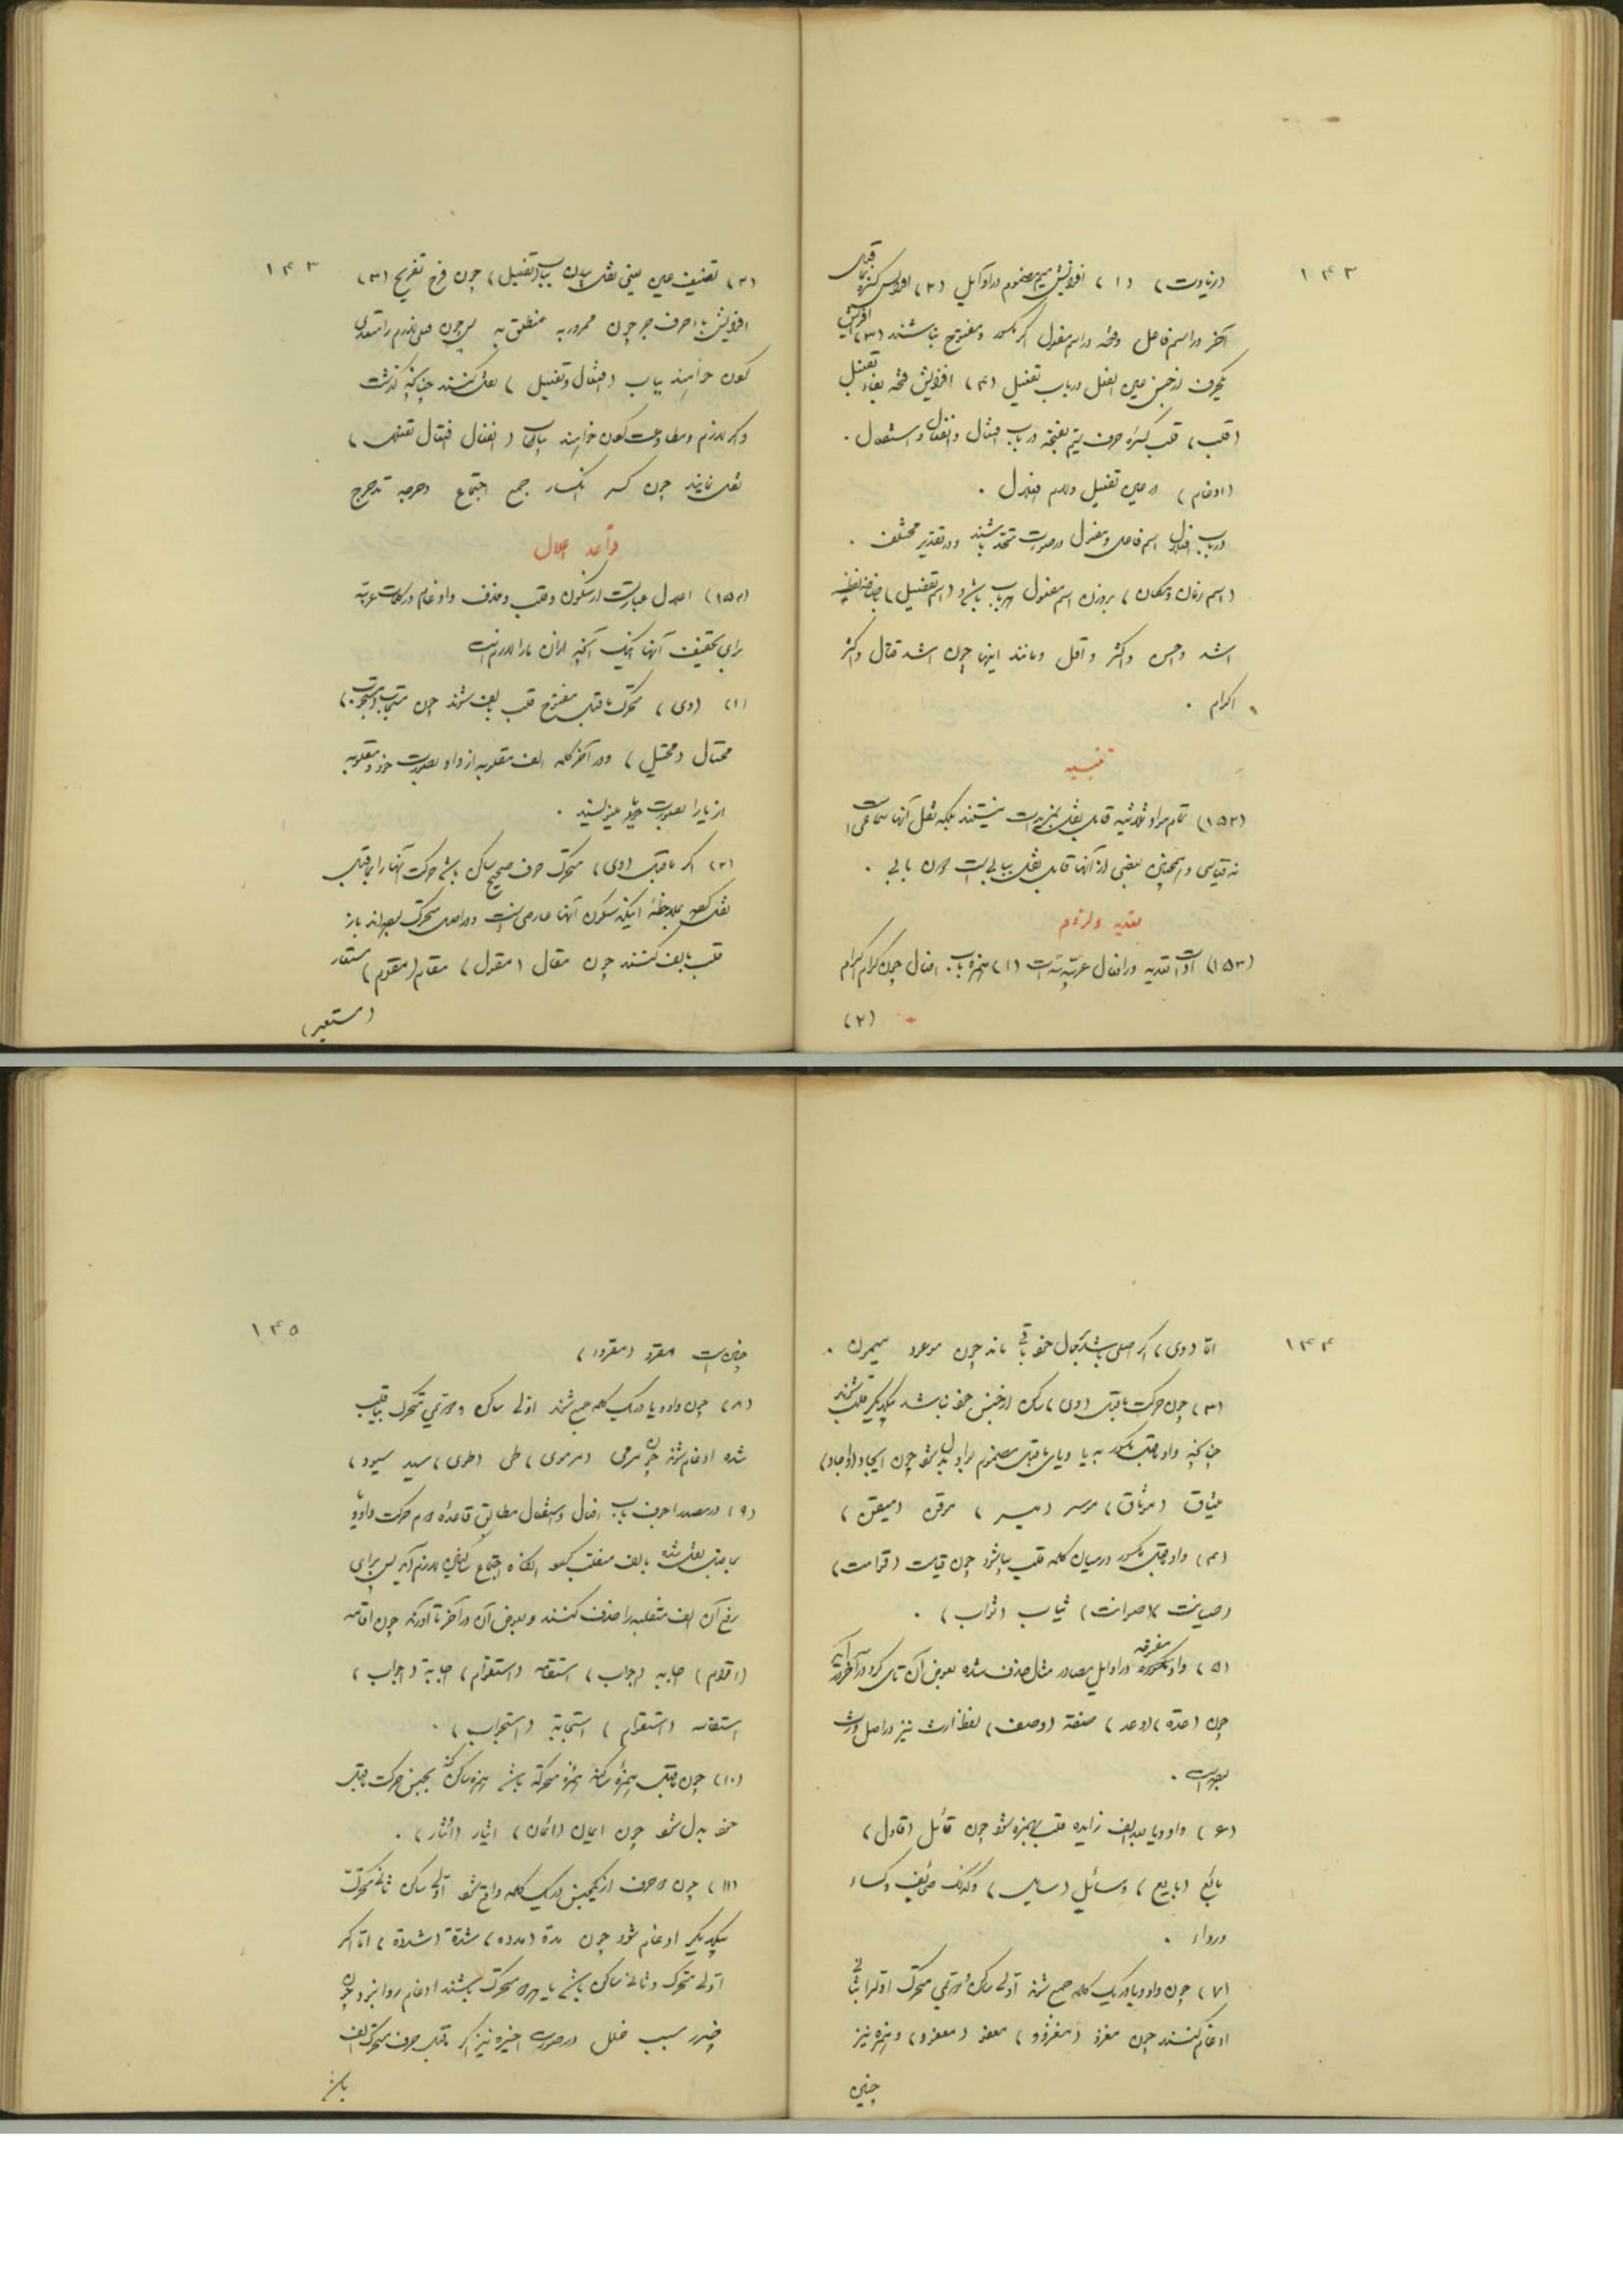 ۱۴۲
(زیادت) (۱) افزایش میم مضموم در اوایل (۲) افزایش کسره ماقبل
آخر در اسم فاعل و فتحه در اسم مفعول اگر مکسور و مفتوح نباشند (۳) افزایش
یکحرف از جنس عین الفعل در باب تفعیل (۴) افزایش فتحه بفاء تفعیل
(قلب) قلب کسره حرف یتیم بفتحه در باب افتعال و انفعال و استفعال .
(ادغام) در عین تفعیل و لام افعلال .
در باب افعلال اسم فاعل و مفعول در صورت متحد باشند و در تقدیر مختلف .
(اسم زمان و مکان) بر وزن اسم مفعول هر باب باشد و (اسم تفضیل)
اشد و احسن و اکثر و اقل و مانند اینها چون اشد قتال و اکثر
اکرام .
تنبیه
(۱۵۲) تمام مواد ثلاثیه قابل نقل بمزیدات نیستند بلکه نقل آنها سماعی است
نه قیاسی و همچنین بعضی از آنها قابل نقل ببابی است دون بابی .
تعدیه و لزوم
(۱۵۳) ادات تعدیه در افعال عربیه سه است (۱) همزه باب افعال چون کرم اکرام
(۲)
۱۴۳
(۲) تضعیف عین یعنی نقل بدان بباب (تفعیل) چون فرح تفریح (۳)
افزایش با حرف جر چون مرور به منطلق به پس چون فعل لازم را متعدی
کردن خواهند بباب (افعال و تفعیل) نقل کنند چنانکه گذشت
و اگر لازم و مطاوعت کردن خواهند بباب (انفعال افتعال تفعلل)
نقل نمایند چون کسر انکسار جمع اجتماع دحرجه تدحرج
قواعد اعلال
(۱۵۴) اعلال عبارتست از سکون و قلب و حذف و ادغام در کلمات عربیه
برای تخفیف آنها اینک آنچه از آن ما را لازم است
(۱) (وی) متحرک ماقبل مفتوح قلب بالف شوند چون
محتال (محتیل) و در آخر کلمه الف مقلوبه از واو بصورت خود و مقلوبه
از یا را بصورت یا مینویسند .
(۲) اگر ماقبل (وی) متحرک حرف صحیح ساکن باشد حرکت آنها را بماقبل
نقل کرده بملاحظۀ اینکه سکون آنها عارضی است و در اصل متحرک بوده‌اند باز
قلب بالف کنند چون مقال (مقول) مقام (مقوم) مستعار
(مستعیر)
۱۴۴
اما (وی) اگر اصلی باشد بحال خود باقی ماند چون موعود میمون .
(۳) چون حرکت ماقبل (وی) ساکن از جنس خود نباشد بیکدیگر قلب شوند
چنانکه واو ماقبل مکسور به یا و یای ماقبل مضموم بواو بدل شود چون ایجاد (اوجاد)
میثاق (موثاق) موسر (میسر) موقن (میقن)
(۴) واو ماقبل مکسور در میان کلمه قلب بیا شود چون قیامت (قوامت)
(صیانت) (صوانت) ثیاب (ثواب) .
(۵) واو مفروقه در اوایل مصادر مثال حذف شده بعوض آن تای گرد در آخر درآید
چون (عدة) (وعد) صفة (وصف) لفظ ارث نیز در اصل ورث
بوده است .
(۶) واو و یا بعد الف زایده قلب بهمزه شود چون قائل (قاول)
بائع (بایع) وسائل (سایل) و کذلک صحائف و کساء
و رداء .
(۷) چون واو و یا در یک کلمه جمع شوند اولی ساکن و دویمی متحرک اولرا بثانی
ادغام کنند چون مغزو (مغزوو) معفو (معفوو) و همزه نیز
چنین
۱۴۵
چنین است مقرو (مقروء)
(۸) چون واو و یا در یک کلمه جمع شوند اولی ساکن و دویمی متحرک بیا قلب
شده ادغام شوند چون مرمی (مرموی) طی (طوی) سید سیود)
(۹) در مصدر اجوف باب افعال و استفعال مطابق قاعدۀ دوم حرکت واو و یا
بماقبل نقل شده بالف منقلب گردد آنگاه اجتماع ساکنین لازم آید پس برای
رفع آن الف منقلبه را حذف کنند و بعوض آن در آخر تا آورند چون اقامه
(اقوام) اجابه (اجواب) استقامه (استقوام) اجابة (اجواب)
استقامه (استقوام) استجابة (استجواب) .
(۱۰) چون ماقبل همزۀ ساکنه همزۀ متحرکه باشد همزه ساکنه بجنس حرکت ماقبل
خود بدل شود چون ایمان (ائمان) ایثار (ائثار) .
(۱۱) چون دو حرف از یکجنس در یک کلمه واقع شود اولی ساکن ثانی متحرک
بیکدیگر ادغام شود چون مدة (مدده) شدة (شددة) اما اگر
اولی متحرک و ثانی ساکن باشد یا هر دو متحرک باشند ادغام روا نبود چون
ضرر سبب خلل در صورت اخیره نیز اگر ماقبل حرف متحرک الف
باشد